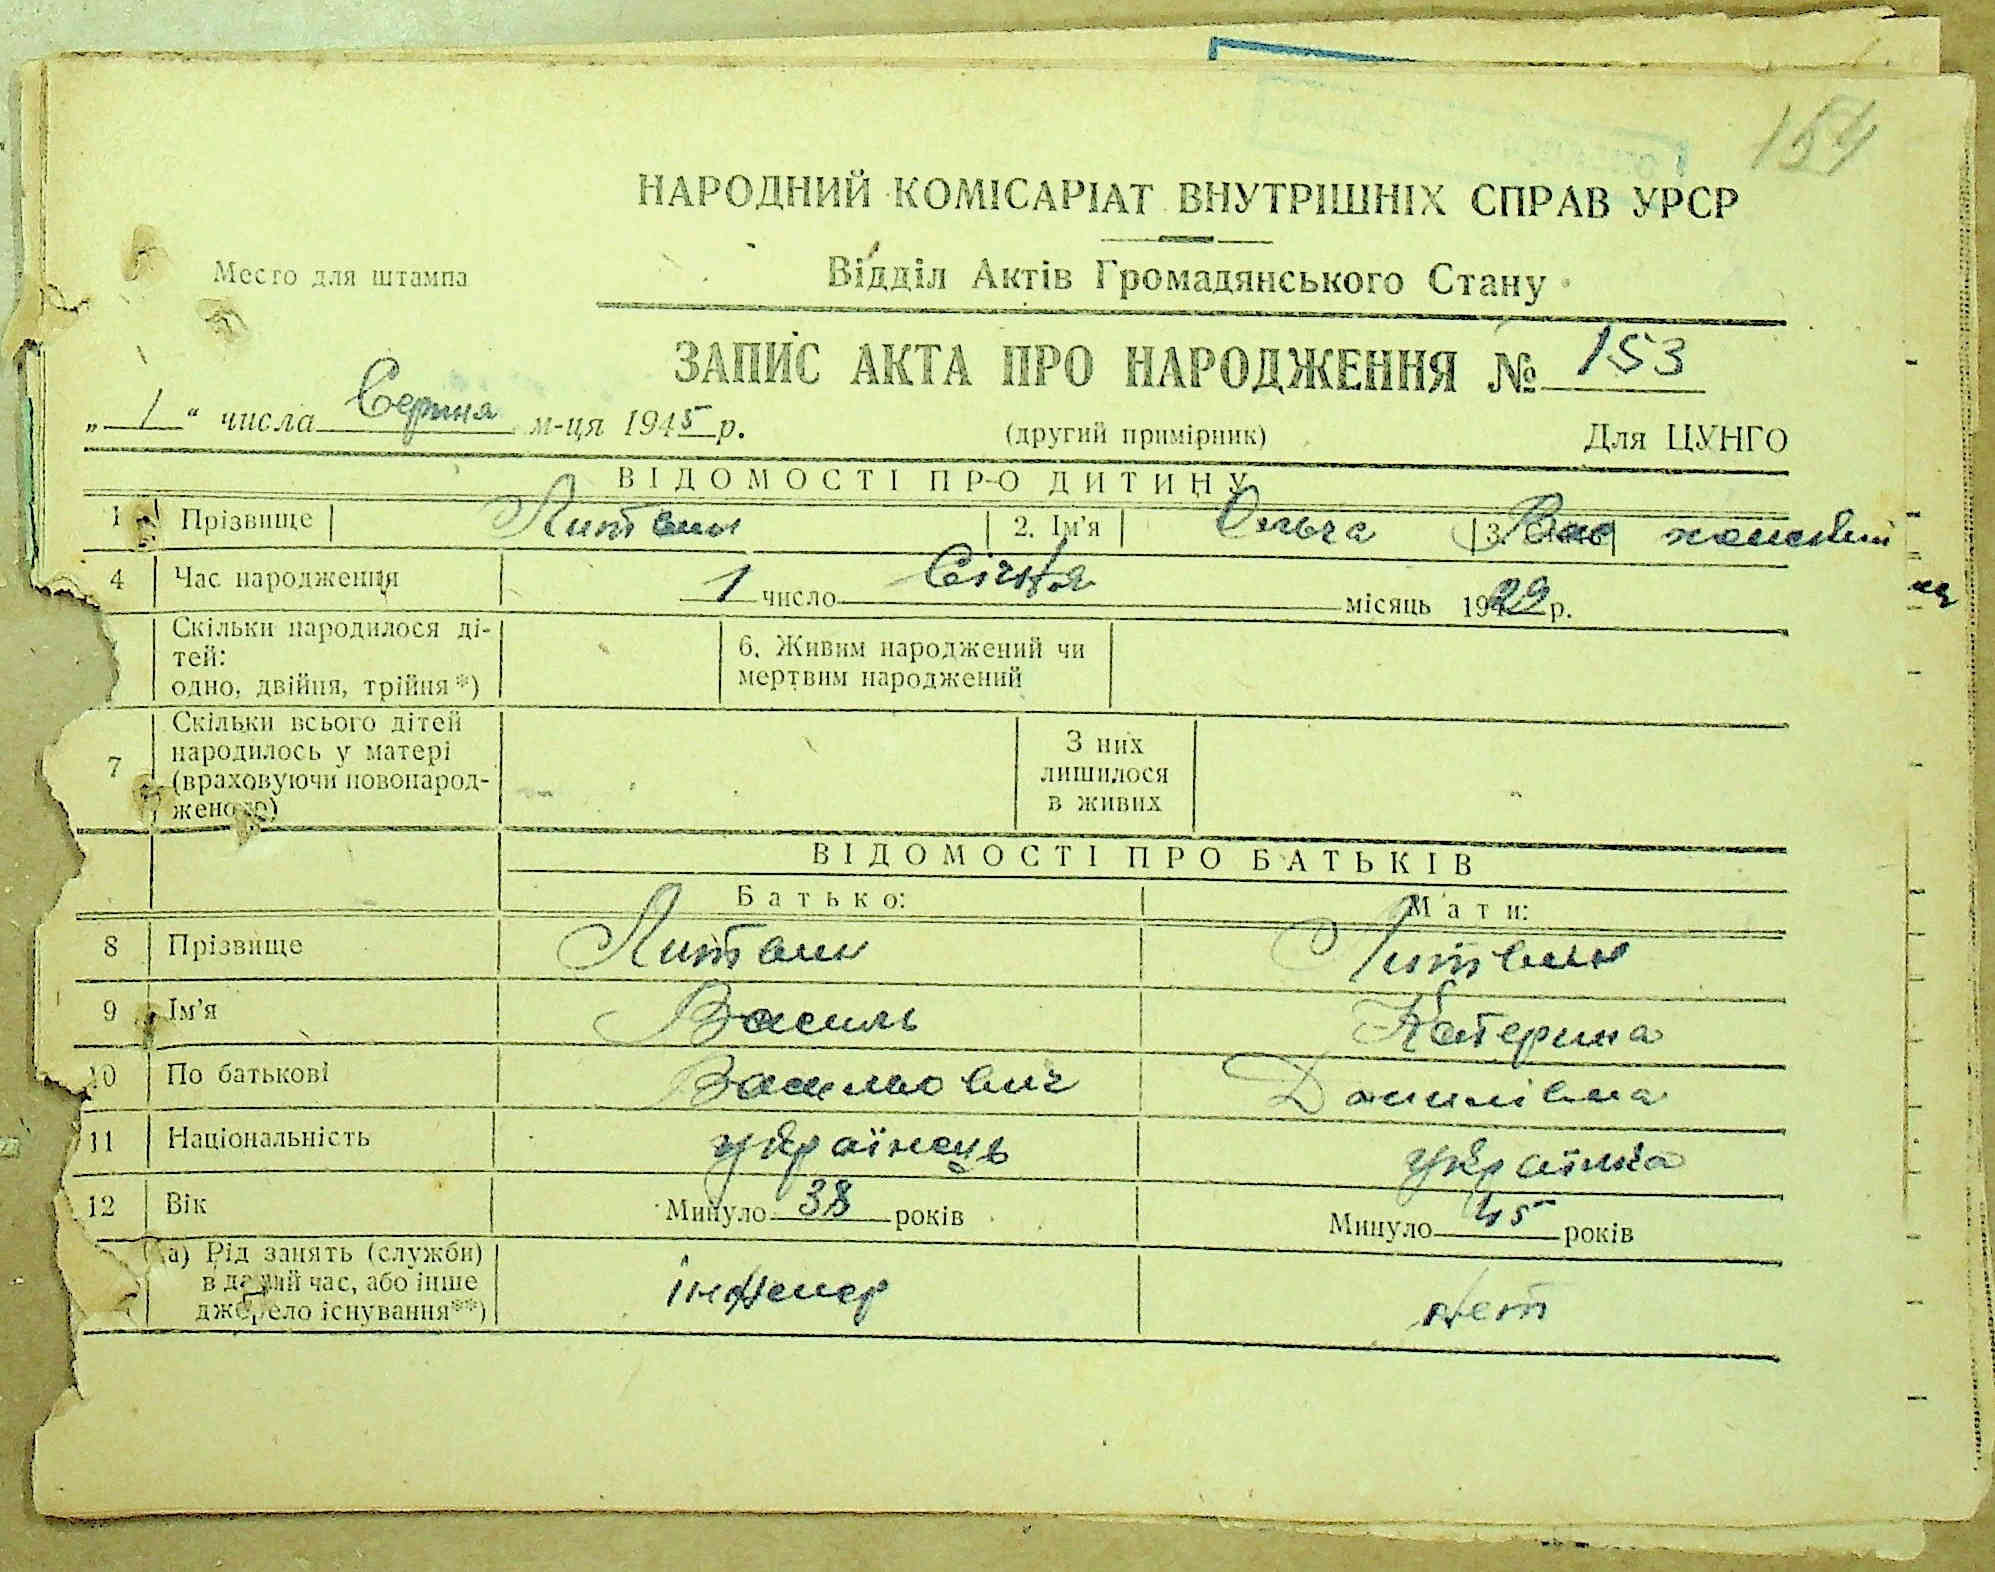 154
НАРОДНИЙ КОМІСАРІАТ ВНУТРІШНІХ СПРАВ УРСР
Место для штампа
Відділ Актів Громадянського Стану
ЗАПИС АКТА ПРО НАРОДЖЕННЯ № 153
„ 1 “ числа Серпня м-ця 1945 р.
(другий примірник)
Для ЦУНГО
ВІДОМОСТІ ПРО ДИТИНУ
1 Прізвище Литвин 2. Ім'я Ольга 3.
4 Час народження 1 число Січня місяць 1929 р.
Скільки народилося ді-
тей:
одно, двійня, трійня*)
6. Живим народжений чи
мертвим народжений
7 Скільки всього дітей
народилось у матері
(враховуючи новонарод-
женого)
З них
лишилося
в живих
ВІДОМОСТІ ПРО БАТЬКІВ
Батько: Мати:
8 Прізвище Литвин Литвин
9 Ім'я Василь Катерина
10 По батькові Васильович Данилівна
11 Національність українець українка
12 Вік Минуло 38 років Минуло 45 років
а) Рід занять (служби)
в даний час, або інше
джерело існування**)
інженер нет